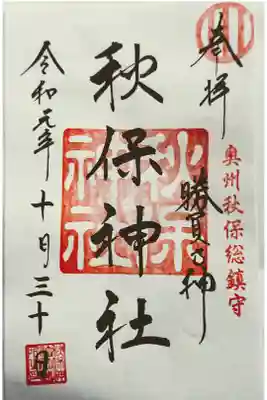 奉拝
奥州秋保総鎮守
勝負乃神
秋保神社
秋保神社
令和元年十月三十日